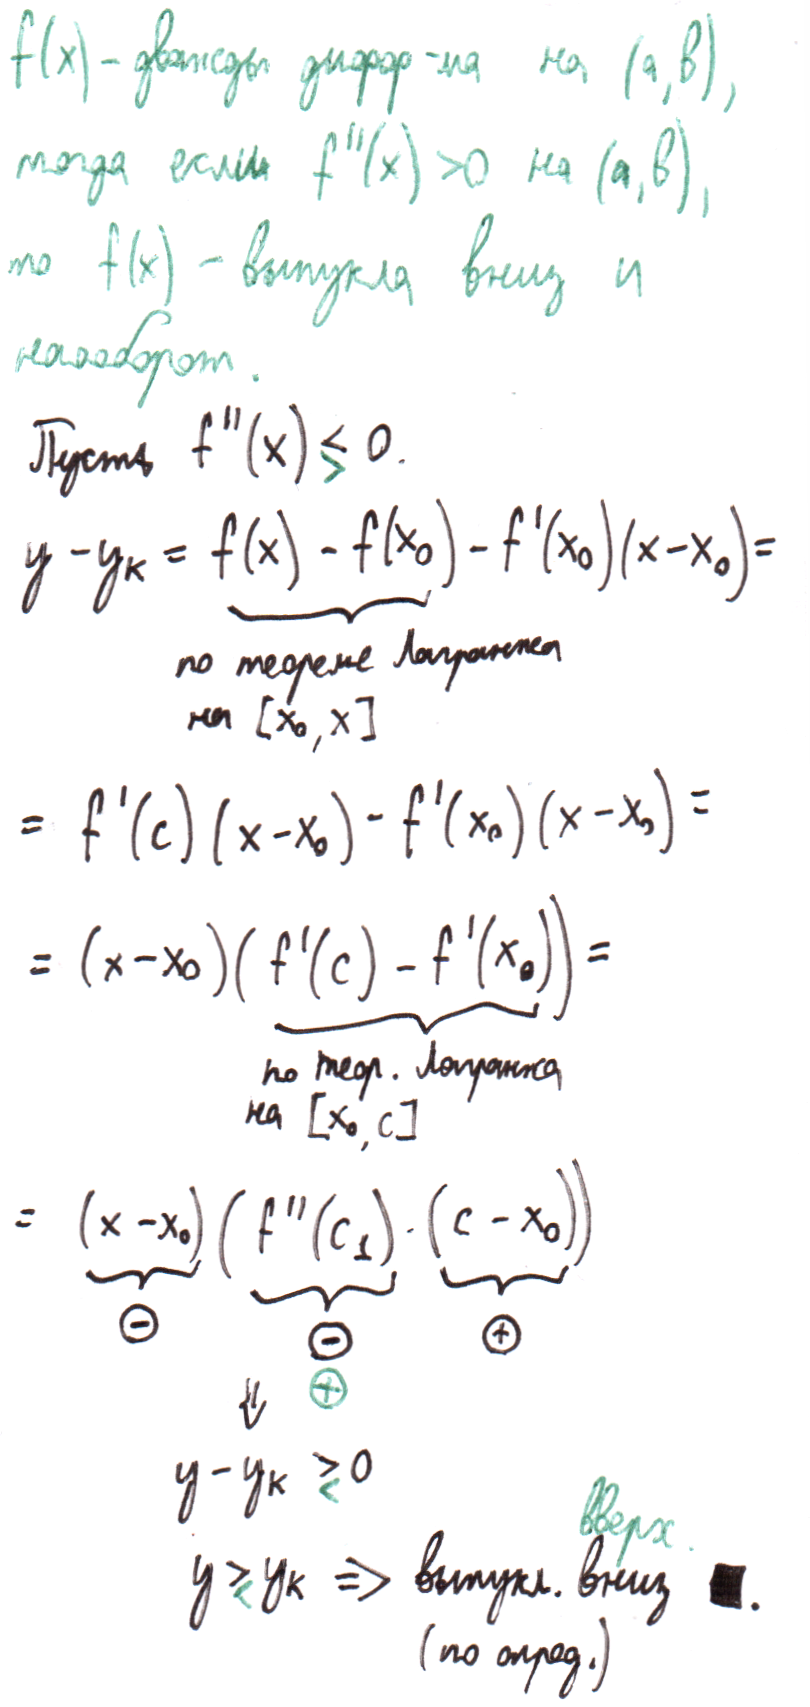 f(x) - дважды дифф-ма на (a,b),
тогда если f''(x) >0 на (a,b),
то f(x) - выпукла вниз и
наооборот.
Пусть f''(x) ≤ 0.
>
y - yк = f(x) - f(x₀) - f'(x₀)(x-x₀) =
по теореме Лагранжа
на [x₀, x]
= f'(c)(x-x₀) - f'(x₀)(x-x₀) =
= (x-x₀)(f'(c) - f'(x₀)) =
по теор. Лагранжа
на [x₀, c]
= (x-x₀)(f''(c₁)·(c-x₀))
⊖ ⊖ ⊕
⇓ ⊕
y - yк ≥ 0
<
вверх.
y ≥ yк => выпукл. вниз ■.
<
(по опред.)